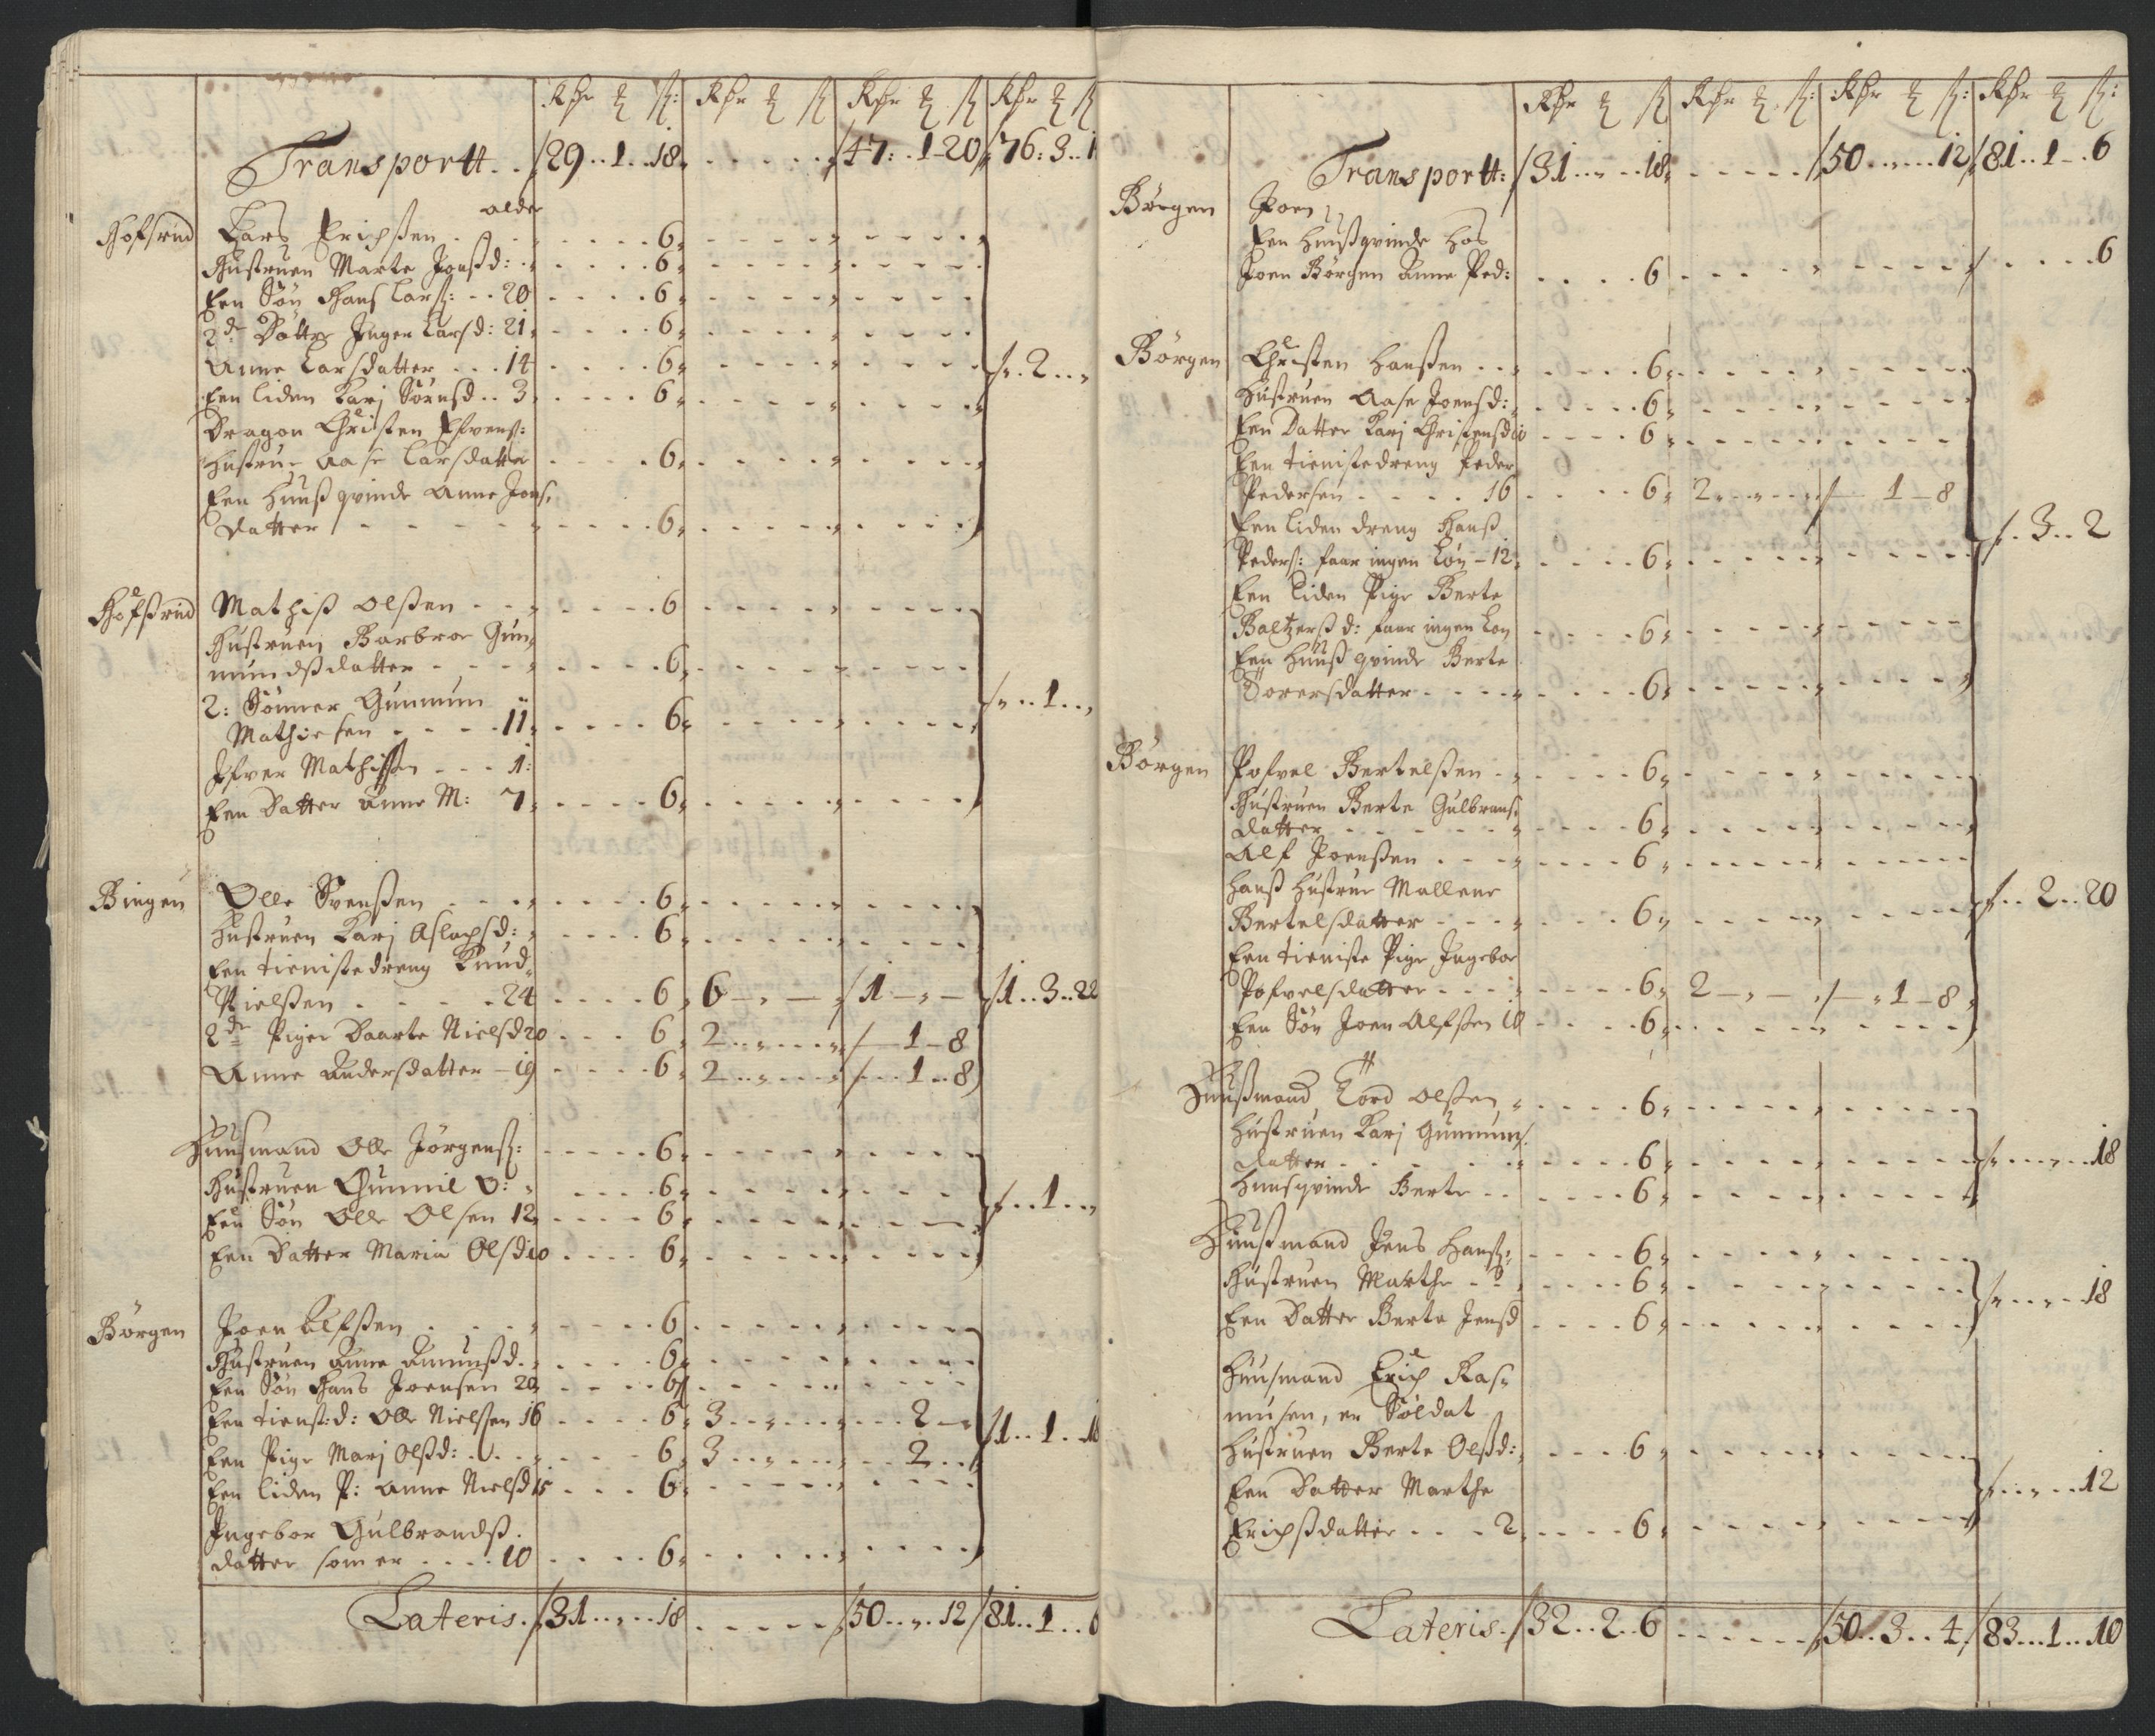 Rdr ℥ ß: Rdr ℥ ß Rdr ℥ ß Rdr ℥ ß
Transportt . . /29 . . 1 . . 18 /47: . 1 - 20 /76: 3 . . 1
alder
Hofsrud Lars Erichsen . . . 6
Hustruen Marte Jonsd: . . 6
Een Søn Hans Lars: . . 20 . . 6
2de Døttre Inger Larsd: 21 . . 6
Anne Larsdatter . . . 14 . . 6 /" . 2 . . "
Een liden Karj Sørnsd . . 3 . . 6
Dragon Christen Efvens:
Hustrue Aase Larsdatter . . 6
Een Huusqvinde Anne Jons
datter . . . 6
Høfsrud Mathis Olsen . . . 6
Hustruen Barbroe Gun
mundsdatter . . . 6
2: Sønner Gunnum
Mathiesen . . . 11 . . 6 /" . . 1 . . "
Ifver Mathissen . . . 1:
Een Datter Anne M: 7 . . 6
Bingen Olle Svensen . . . 6
Hustruen Karj Aslachsd: . . 6
Een tienistedreng Knud
Nielsen . . . 24 . . 6 6 - " - /1 - " - /1 . . 3 . . 22
2de Piger Daarte Nielsd 20 . . 6 2 . . " . . /- 1 - 8
Anne Andersdatter - 19 . . 6 2 . . " . . /. . 1 . . 8
Huusmand Olle Jørgens: . . 6
Hustruen Gunnil O: . . 6
Een Søn Olle Olsen 12 . . 6 /" . . 1 . . "
Een Datter Maria Olsd 10 . . 6
Børgen Joen Alfsen . . . 6
Hustruen Anne Amunsd . . 6
Een Søn Hans Joensen 20 . . 6
Een tienst:d: Olle Nielsen 16 . . 6 3 . . " . . . . 2 - " /1 . . 1 . . 18
Een Pige Marj Olsd: . . 6 3 . . " . . . . 2 . .
Een liden P: Anne Nielsd 15 . . 6
Ingebor Gulbrands
datter som er . . . 10 . . 6
Lateris . /31 . . " . . 18 /50 . . " . 12 /81 . . 1 . . 6
Rdr ℥ ß Rdr ℥ ß: Rdr ℥ ß: Rdr ℥ ß:
Transportt: /31 . . " . . 18 /50 . . " . . 12 /81 . . 1 - . 6
Børgen Joen
Een Huusqvinde hos
Joen Børgen Anne Ped: . . 6 /. . . . 6
Børgen Christen Hansen . . 6
Hustruen Aase Joensd: . . 6
Een Datter Karj Christensd 10 . . 6
Een tienistedreng Peder
Pedersen . . . 16 . . 6 2 . . " . . /- 1 - 8
Een liden dreng Hans
Peders: faar ingen Løn - 12 . . 6 /" . 3 . . 2
Een liden Pige Berte
Baltzersd: faar ingen Løn . . 6
Een Huusqvinde Berte
Torersdatter . . . 6
Børgen Pofvel Bertelsen . . 6
Hustruen Berte Gulbrans
datter . . . 6
Alf Joensen . . . 6
Hans Hustrue Mallene
Bertelsdatter . . . 6 /" . . 2 . . 20
Een tieniste Pige Ingebor
Pofvelsdatter . . . 6 2 - " - /- " 1 - 8
Een Søn Joen Alfsen 10 . . 6
Huusmand Tord Olsen . . 6
Hustruen Karj Gunnums
datter . . . 6 /" . . " . . 18
Huusqvinde Berte . . 6
Huusmand Jens Hans: . . 6
Hustruen Marthe . . 6 /" . . " . . 18
Een Datter Berte Jensd . . 6
Huusmand Erich Ras
musen, er Soldat
Hustruen Berte Olsd: . . 6
Een Datter Marthe /" . . " . . 12
Erichsdatter . . . 2 . . 6
Lateris . /32 . . 2 . . 6 /50 . . 3 . . 4 /83 . . 1 . . 10